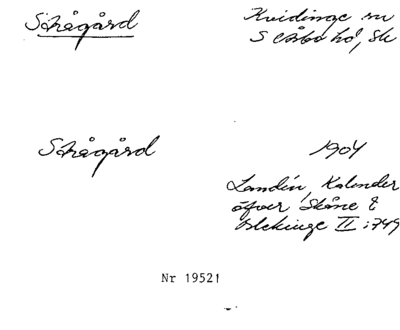 Stågård
Kvidinge sn
S Åsbo hd, Sk
Stågård
1904
Landin, Kalender
öfver Skåne &
Blekinge II:749
Nr 19521